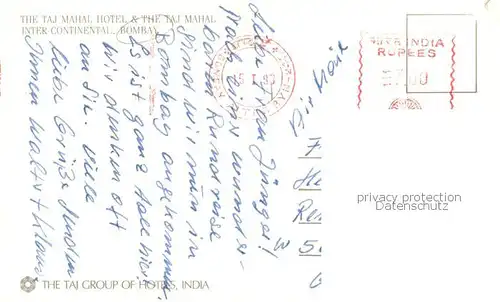 THE TAJ MAHAL HOTEL & THE TAJ MAHAL
INTER·CONTINENTAL, BOMBAY
Liebe Frau Jünger!
Nach einer wunder-
baren Rundreise
sind wir nun in
Bombay angekommen.
Es ist ganz toll hier!
Wir denken oft
an Sie. Viele
liebe Grüße senden
Ihnen Walter + Klaus
THE TAJ GROUP OF HOTELS, INDIA
Air Mail
INDIA
RUPEES
privacy protection
Datenschutz